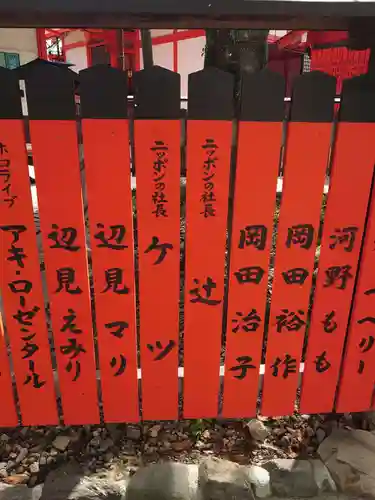 河野もも
岡田裕作
岡田治子
ニッポンの社長
辻
ニッポンの社長
ケツ
辺見マリ
辺見えみり
ホロライブ
アキ・ローゼンタール